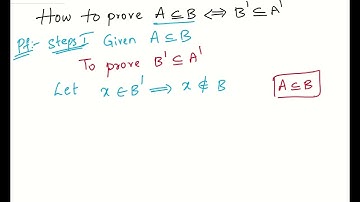 How to prove A ⊆ B ⟺ B' ⊆ A'
Pf:- Steps I Given A ⊆ B
To prove B' ⊆ A'
Let x ∈ B' ⟹ x ∉ B
A ⊆ B